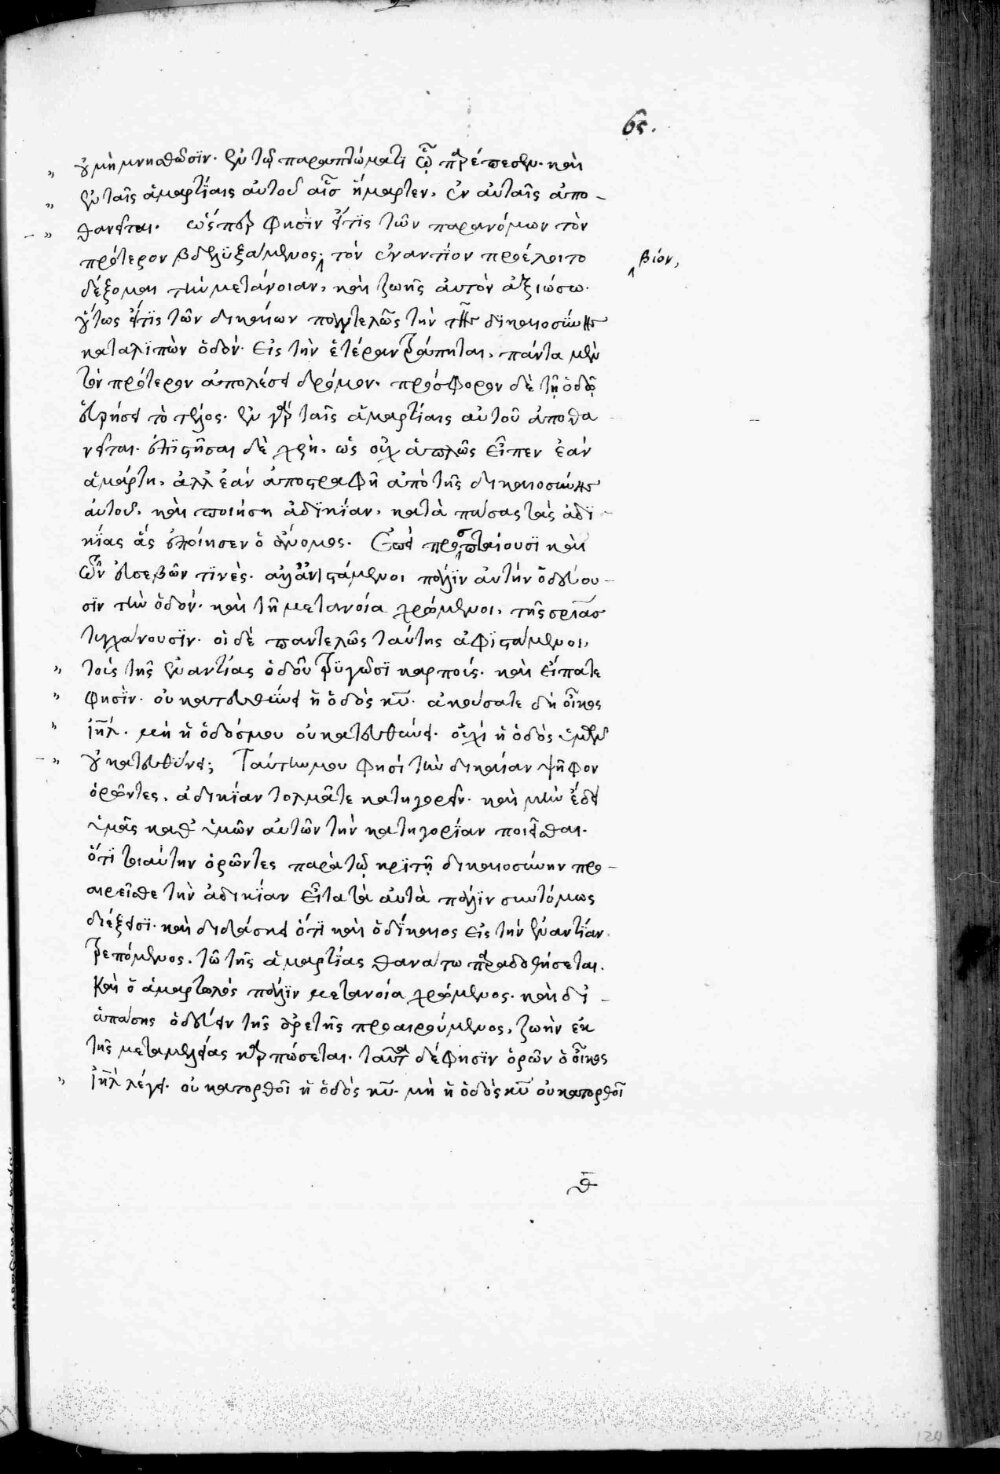 65.
οὐ μὴ μνησθῶσϊν· ἐν τῷ παραπτώματϊ ᾧ παρέπεσεν· καὶ
ἐν ταῖς ἁμαρτίαις αὐτοῦ αἷς ἥμαρτεν, ἐν αὐταῖς ἀπο-
θανεῖται. ὥσπερ φησὶν εἴτϊς τῶν παρανόμων τὸν
πρότερον βδελϋξάμενος, τὸν ἐναντίον προέλοιτο
βίον,
δέξομαι τὴν μετάνοιαν, καὶ ζωῆς αὐτὸν ἀξιώσω.
οὕτως εἴτϊς τῶν δικαίων παντελῶς τὴν τῆς δϊκαιοσύνης
καταλϊπὼν ὁδόν· εἰς τὴν ἑτέραν τράπηται, πάντα μὲν
τὸν πρότερον ἀπολέσει δρόμον· πρόσφορον δὲ τῇ ὁδῷ
εὑρήσει τὸ τέλος· ἐν γὰρ ταῖς ἁμαρτίαις αὐτοῦ ἀποθα
νεῖται. ἐπϊστῆσαι δὲ χρὴ, ὡς οὐχ ἁπλῶς εἶπεν ἐὰν
ἁμάρτη, ἀλλ' ἐὰν ἀποστραφῆ ἀπὸ τῆς δικαιοσύνης
αὐτοῦ, καὶ ποιήση ἀδϊκίαν, κατὰ πάσας τὰς ἀδϊ-
κίας ἃς ἐποίησεν ὁ ἄνομος. ἐπεὶ προσπταίουσϊ καὶ
τῶν εὐσεβῶν τϊνὲς· ἀλλ' ἀνιστάμενοι πάλϊν αὐτὴν ὁδεύου-
σϊν τὴν ὁδόν· καὶ τῆ μετανοία χρώμενοι, τῆς σωτηρίας
τυγχάνουσϊν· οἱ δὲ παντελῶς ταύτης ἀφϊστάμενοι,
τοῖς τῆς ἐναντίας ὁδοῦ τρϋγῶσϊ καρποῖς. καὶ εἴπατε
φησϊν· οὐ κατευθύνει ἡ ὁδὸς κυ. ἀκούσατε δὴ οἶκος
ιηλ. μὴ ἡ ὁδός μου οὐ κατευθύνει. οὐχὶ ἡ ὁδὸς ὑμῶν
οὐ κατευθύνει; Ταύτην μου φησὶ τὴν δικαίαν ψῆφον
ὁρῶντες, ἀδικίαν τολμᾶτε κατηγορεῖν· καὶ μὴν ἔδει
ὑμᾶς καθ' ὑμῶν αὐτῶν τὴν κατηγορίαν ποιεῖσθαι.
ὅτϊ τοιαύτην ὁρῶντες παρὰ τῷ κρϊτῇ δικαιοσύνην προ-
αιρεῖσθε τὴν ἀδικίαν εἶτα τὰ αὐτὰ πάλϊν συντόμως
διέξεισϊ· καὶ διδάσκει ὅτϊ καὶ ὁ δίκαιος εἰς τὴν ἐναντίαν
τρεπόμενος, τῶ τῆς ἁμαρτίας θανάτω παραδοθήσεται.
Καὶ ὁ ἁμαρτωλὸς πάλϊν μετανοία χρώμενος· καὶ δϊ-
ἁπάσης ὁδεύειν τῆς ἀρετῆς προαιρούμενος, ζωὴν ἐκ
τῆς μεταμελείας καρπώσεται. ταῦτα δέ φησϊν ὁρῶν ὁ οἶκος
ιηλ λέγει· οὐ κατορθοῖ ἡ ὁδὸς κυ. μὴ ἡ ὁδὸς κυ οὐ κατορθοῖ
θ